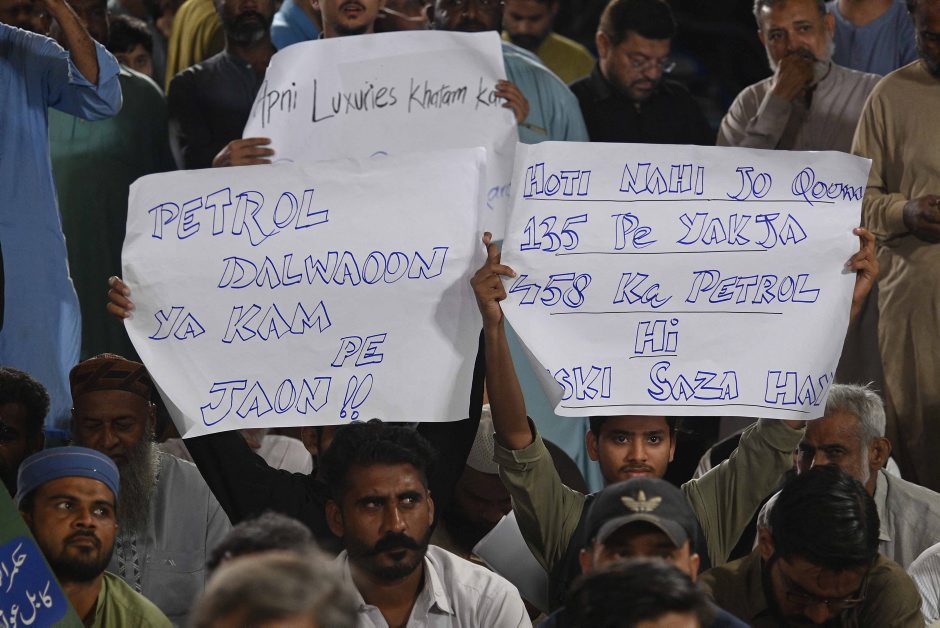 Apni Luxuries Khatam
PETROL
DALWAOON
YA KAM
PE
JAON!!
HOTI NAHI JO Qoum
135 Pe YAKJA
458 Ka PETROL
Hi
USKI SAZA HAY
کا بل